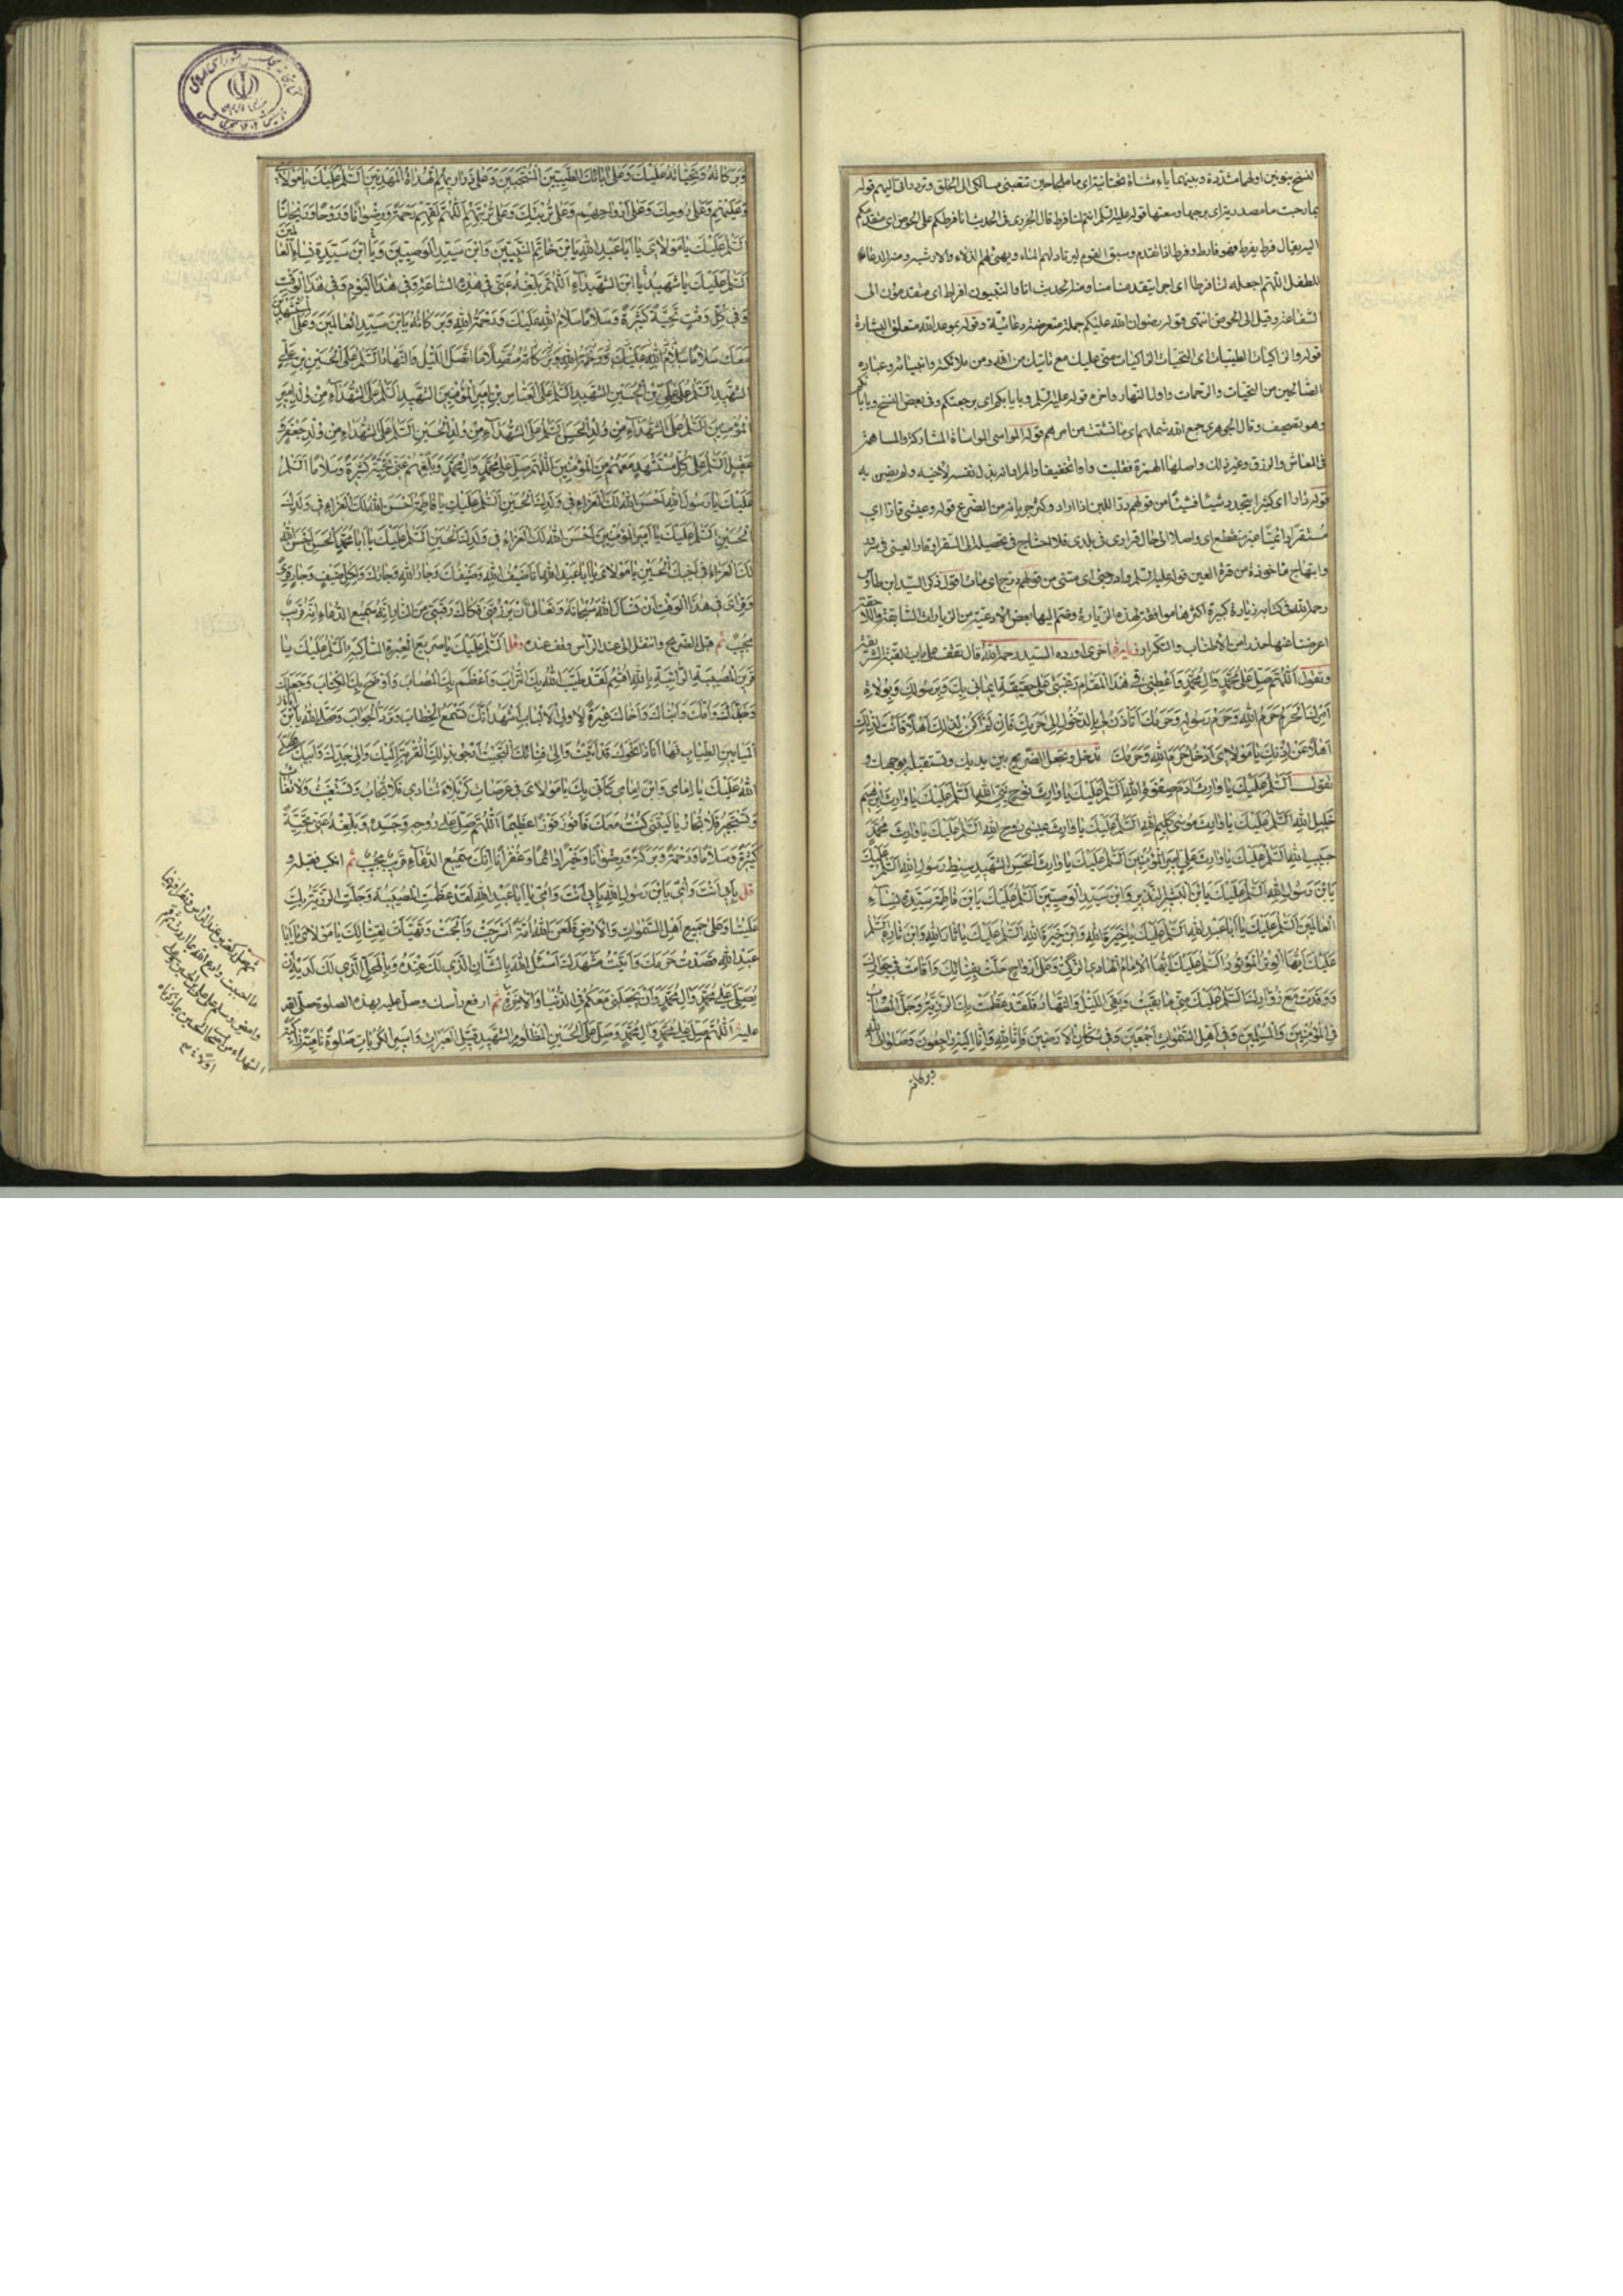 بما رحبت ما مصدرية اى برحبها وسعتها قوله عليه السلم انتم لنا فرط قال الجزرى فى الحديث انا فرطكم على الحوض اى متقدمكم
اليه يقال فرط يفرط فهو فارط وفرط اذا تقدم وسبق القوم ليرتاد لهم الماء ويهيئ لهم الدلاء والارشية ومنه الدعاء
للطفل اللهم اجعله لنا فرطا اى اجرا يتقدمنا ومنه الحديث انا والنبيون افراط اى متقدمون الى
الشفاعة وقيل الى الحوض انتهى وقوله رضوان الله عليكم جملة معترضة دعائية وقوله بموعد الله متعلق البشارة
قوله والزاكيات الطيبات اى التحيات الزاكيات منى عليك مع ما يليك من الله ومن ملائكته وانبيائه وعباده
الصالحين من التحيات والرحمات واول النهار واخره قوله عليه السلم وبايابكم اى برجعتكم وفى بعض النسخ
وهو تصحيف وقال الجوهرى جمع الله شملهم اى ما تشتت من امرهم قوله المواسى المواساة المشاركة والمساهمة
فى المعاش والرزق وغير ذلك واصلها الهمزة فقلبت واوا تخفيفا والمراد انه بذل نفسه لاخيه ولم يضن به
رحمه الله فى كتابه زيارة كبيرة اكثرها موافقة لهذه الزيارة وضم اليها بعض الادعية من الزيارات السابقة واللاحقة
اعرضنا عنها حذرا من الاطناب والتكرار زيارة اخرى اورده السيد رحمه الله قال تقف على باب القبة الشريفة
وتقول اللهم صل على محمد وال محمد واعطنى فى هذا المقام رغبتى على حقيقة ايمانى بك وبرسولك وبولاة
امرك الحرم حرم الله وحرم رسوله وحرمك اتاذن لى بالدخول الى حرمك فان لم اكن لذلك اهلا فانت لذلك
اهل عن اذنك يا مولاى ادخل حرم الله وحرمك تدخل وتجعل الضريح بين يديك وتستقبله بوجهك و
تقول السلم عليك يا وارث ادم صفوة الله السلم عليك يا وارث نوح نبى الله السلم عليك يا وارث ابرهيم
خليل الله السلم عليك يا وارث موسى كليم الله السلم عليك يا وارث عيسى روح الله السلم عليك يا وارث محمد
حبيب الله السلم عليك يا وارث على امير المؤمنين السلم عليك يا وارث الحسن الشهيد سبط رسول الله السلم عليك
يا بن رسول الله السلم عليك يا بن البشير النذير وابن سيد الوصيين السلم عليك يا بن فاطمة سيدة نساء
العالمين السلم عليك يا ابا عبد الله السلم عليك يا خيرة الله وابن خيرة الله السلم عليك يا ثار الله وابن ثاره السلم
عليك ايها الوتر الموتور السلم عليك ايها الامام الهادى الزكى وعلى ارواح حلت بفنائك واقامت فى جوارك
ووفدت مع زوارك السلم عليك منى ما بقيت وبقى الليل والنهار فلقد عظمت بك الرزية وجل المصاب
فى المؤمنين والمسلمين وفى اهل السموات اجمعين وفى سكان الارضين فانا لله وانا اليه راجعون وصلوات الله
وبركاته
وبركاته وتحياته عليك وعلى ابائك الطيبين المنتجبين وعلى ذراريهم الهداة المهديين السلم عليك يا مولاى
وعليهم وعلى روحك وعلى ارواحهم وعلى تربتك وعلى تربتهم اللهم لقهم رحمة ورضوانا وروحا وريحانا
السلم عليك يا مولاى يا ابا عبد الله يا بن خاتم النبيين وابن سيد الوصيين ويا ابن سيدة نساء العالمين
السلم عليك يا شهيد يا ابن الشهيد اللهم بلغه عنى فى هذه الساعة وفى هذا اليوم وفى هذا الوقت
وفى كل وقت تحية كثيرة وسلاما سلام الله عليك ورحمة الله وبركاته يا بن سيد العالمين وعلى المستشهدين
معك سلاما متصلا ما اتصل الليل والنهار السلم على الحسين بن على
الشهيد السلم على على بن الحسين الشهيد السلم على العباس بن امير المؤمنين الشهيد السلم على الشهداء من ولد امير
المؤمنين السلم على الشهداء من ولد الحسن السلم على الشهداء من ولد الحسين السلم على الشهداء من ولد جعفر و
عقيل السلم على كل مستشهد معهم من المؤمنين اللهم صل على محمد وال محمد وبلغهم عنى تحية كثيرة وسلاما السلم
عليك يا رسول الله احسن الله لك العزاء فى ولدك الحسين السلم عليك يا فاطمة احسن الله لك العزاء فى ولدك
الحسين السلم عليك يا امير المؤمنين احسن الله لك العزاء فى ولدك الحسين السلم عليك يا ابا محمد الحسن احسن الله
لك العزاء فى اخيك الحسين يا مولاى يا ابا عبد الله انا ضيف الله وضيفك وجار الله وجارك ولكل ضيف وجار قرى
وقراى فى هذا الوقت ان تسال الله سبحانه وتعالى ان يرزقنى فكاك رقبتى من النار انه سميع الدعاء قريب
مجيب ثم قبل الضريح وانتقل الى عند الراس وقف عنده وقل السلم عليك يا صريع العبرة الساكبة السلم عليك يا
قرين المصيبة الراتبة بالله اقسم لقد طيب الله بك التراب واعظم بك المصاب واوضح بك الكتاب وجعلك
وجدك واباك وامك واخاك وابناءك عبرة لاولى الالباب اشهد انك تسمع الخطاب وترد الجواب وصلى الله عليك يا بن
الميامين الاطياب فها انا ذا نحوك قد اتيت والى فنائك التجيت ارجو بذلك القربة اليك والى جدك وابيك صلى
الله عليك يا امامى وابن امامى كانى بك يا مولاى فى عرصات كربلاء تنادى فلا تجاب وتستغيث فلا تغاث
وتستجير فلا تجار يا ليتنى كنت معك فافوز فوزا عظيما اللهم صل على روحه وجسده وبلغه عنى تحية
كثيرة وسلاما ورحمة وبركة ورضوانا وخيرا دائما وغفرانا انك سميع الدعاء قريب مجيب ثم انكب فقبله و
قل بابى انت وامى يا بن رسول الله بابى انت وامى يا ابا عبد الله لقد عظمت المصيبة وجلت الرزية بك
علينا وعلى جميع اهل السموات والارض فلعن الله امة اسرجت والجمت وتهيات لقتالك يا مولاى يا ابا
عبد الله قصدت حرمك واتيت مشهدك اسئل الله بالشان الذى لك عنده وبالمحل الذى لك لديه ان
يصلى على محمد وال محمد وان يجعلنى معكم فى الدنيا والاخرة ثم ارفع راسك وصل عليه بهذه الصلوة صلى الله
عليه اللهم صل على محمد وال محمد وصل على الحسين المظلوم الشهيد قتيل العبرات واسير الكربات صلوة نامية زاكية